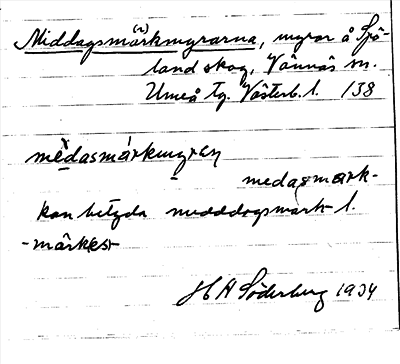 Middagsmarkmyrarna, myrar å Sjö-
land skog, Vännäs sn.
Umeå tg. Västerb. l. 138
medasmárkmyren
medasmark-
kan betyda medddagsmark l.
-märkes-
H A Söderberg 1934